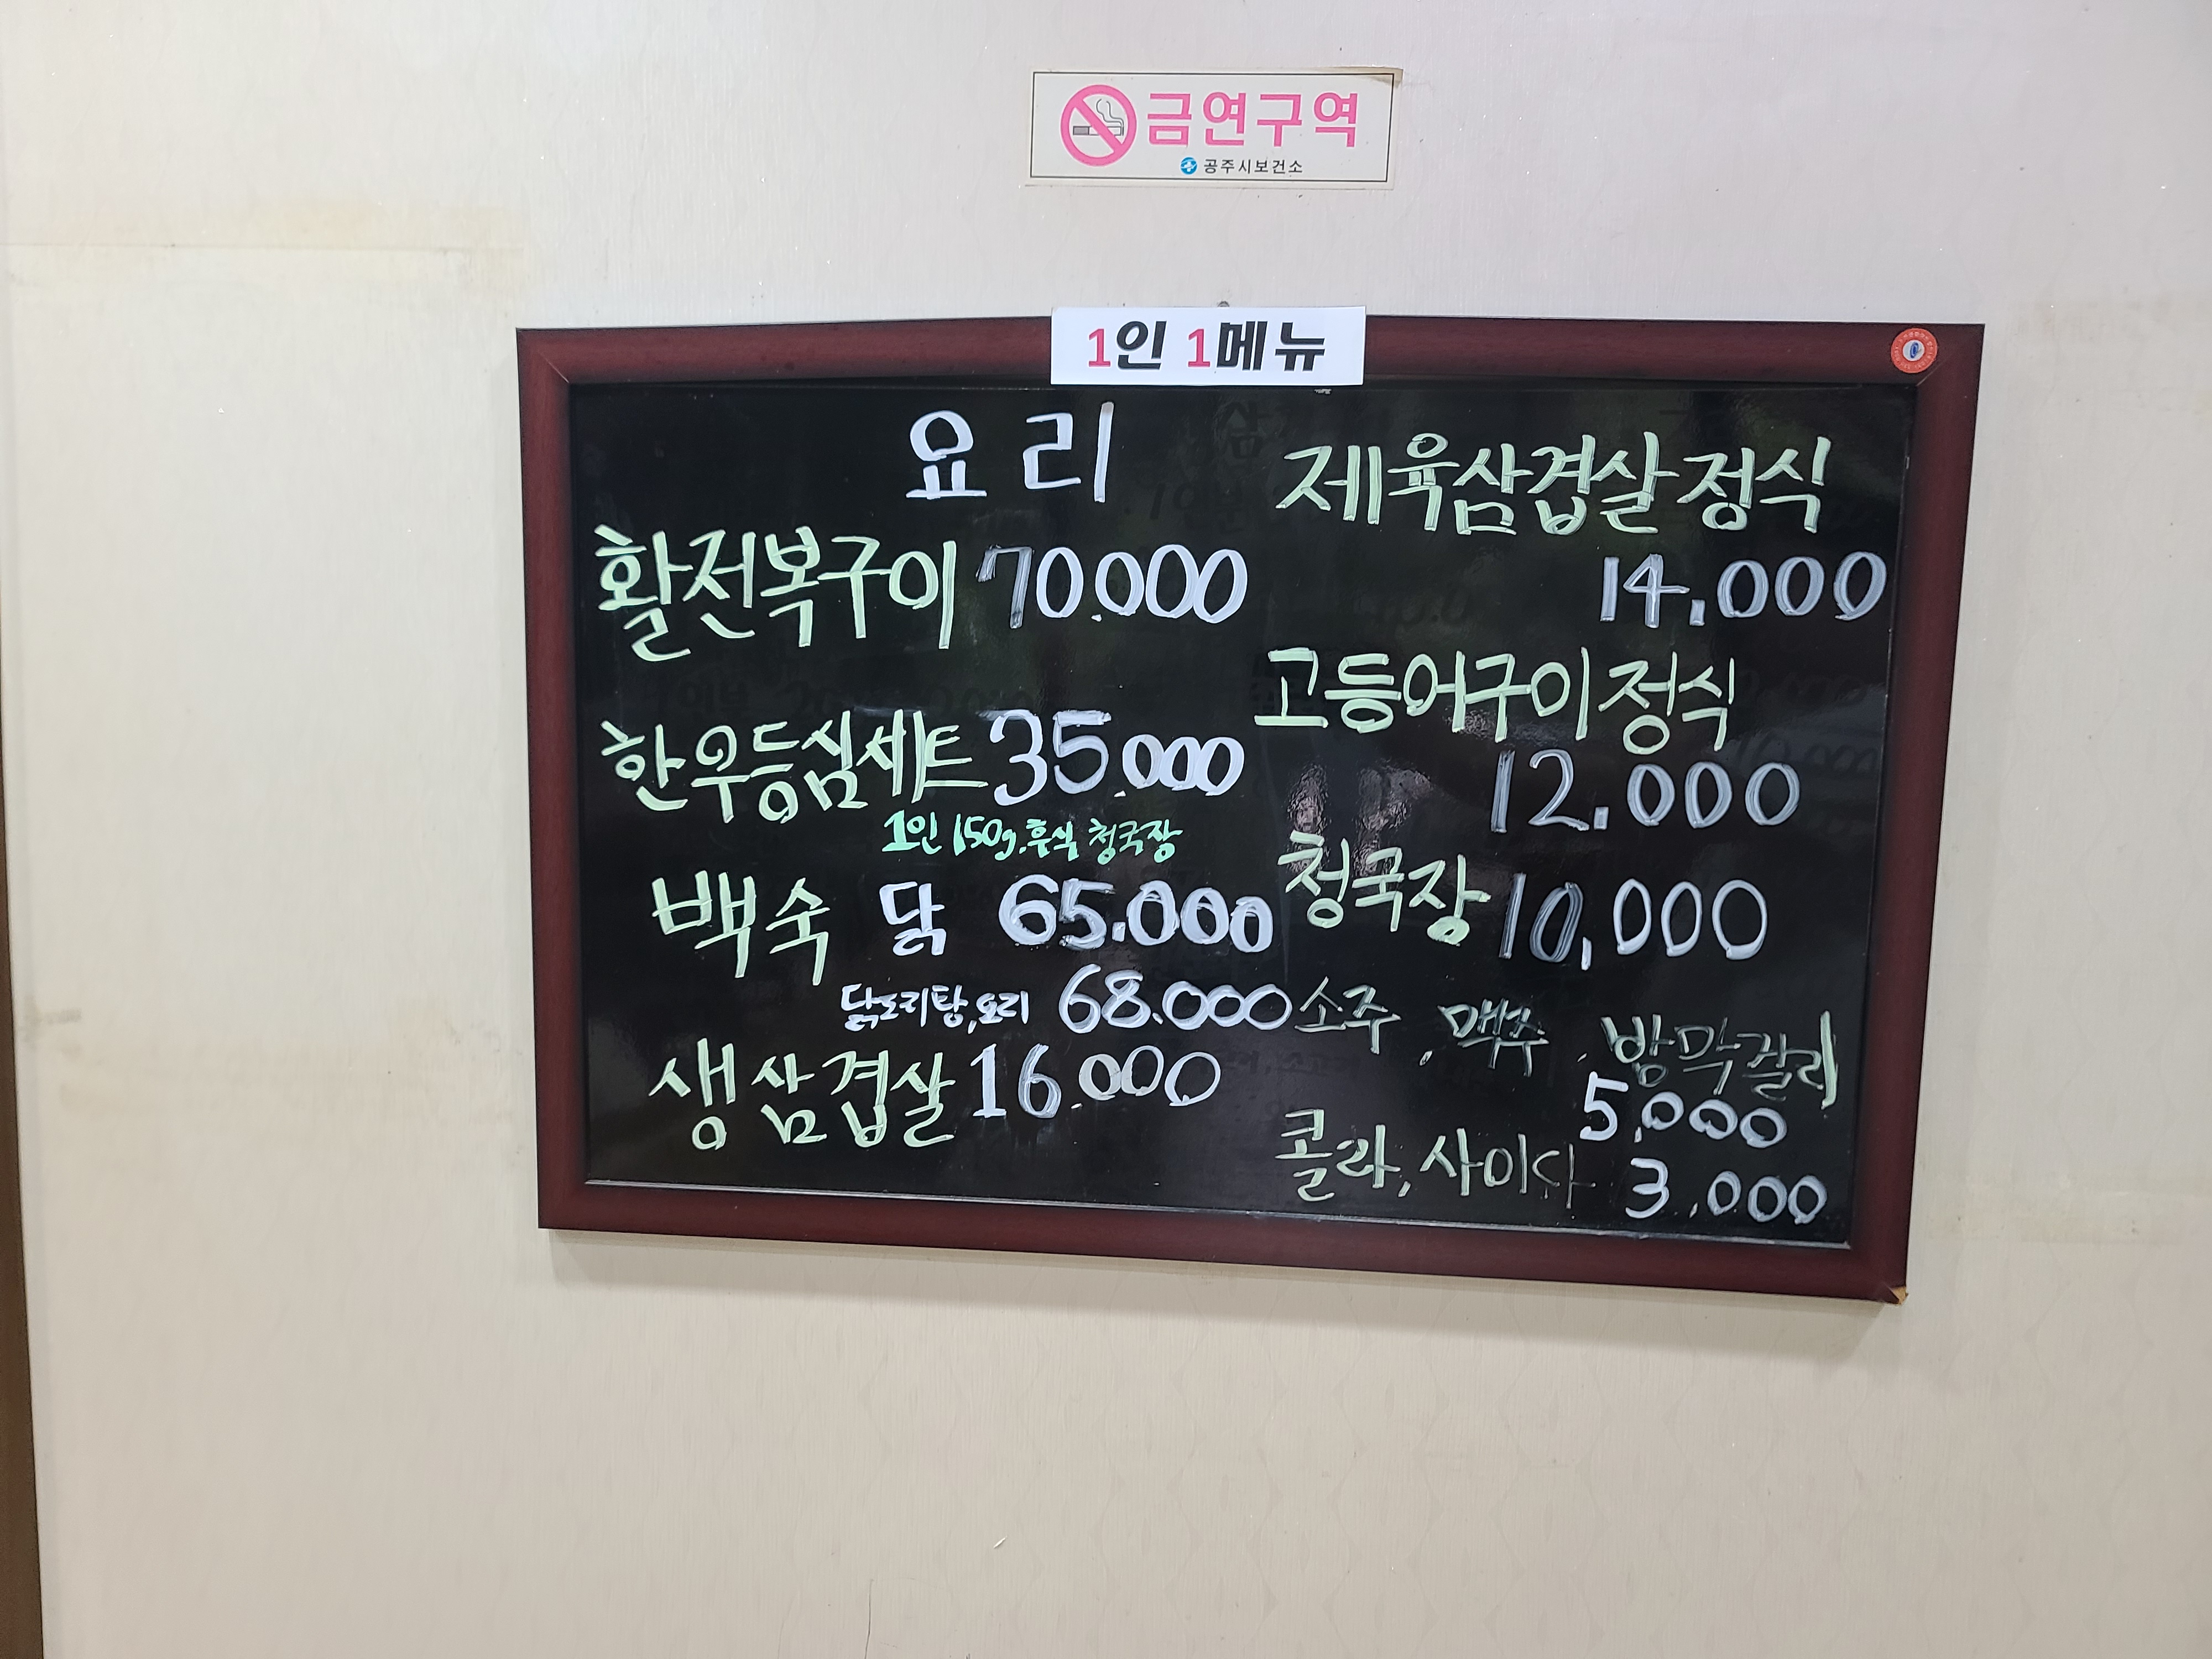 금연구역
공주시보건소
1인 1메뉴
요리
활전복구이 70.000
한우등심세트 35.000
1인 150g.후식 청국장
백숙 닭 65.000
닭도리탕,요리 68.000
생삼겹살 16.000
제육삼겹살정식
14.000
고등어구이정식
12.000
청국장 10,000
소주 , 맥주 , 밤막걸리
5,000
콜라, 사이다 3,000